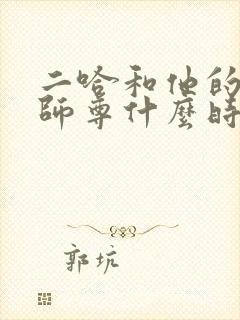 二哈和他的
師尊什麼時
郭坑